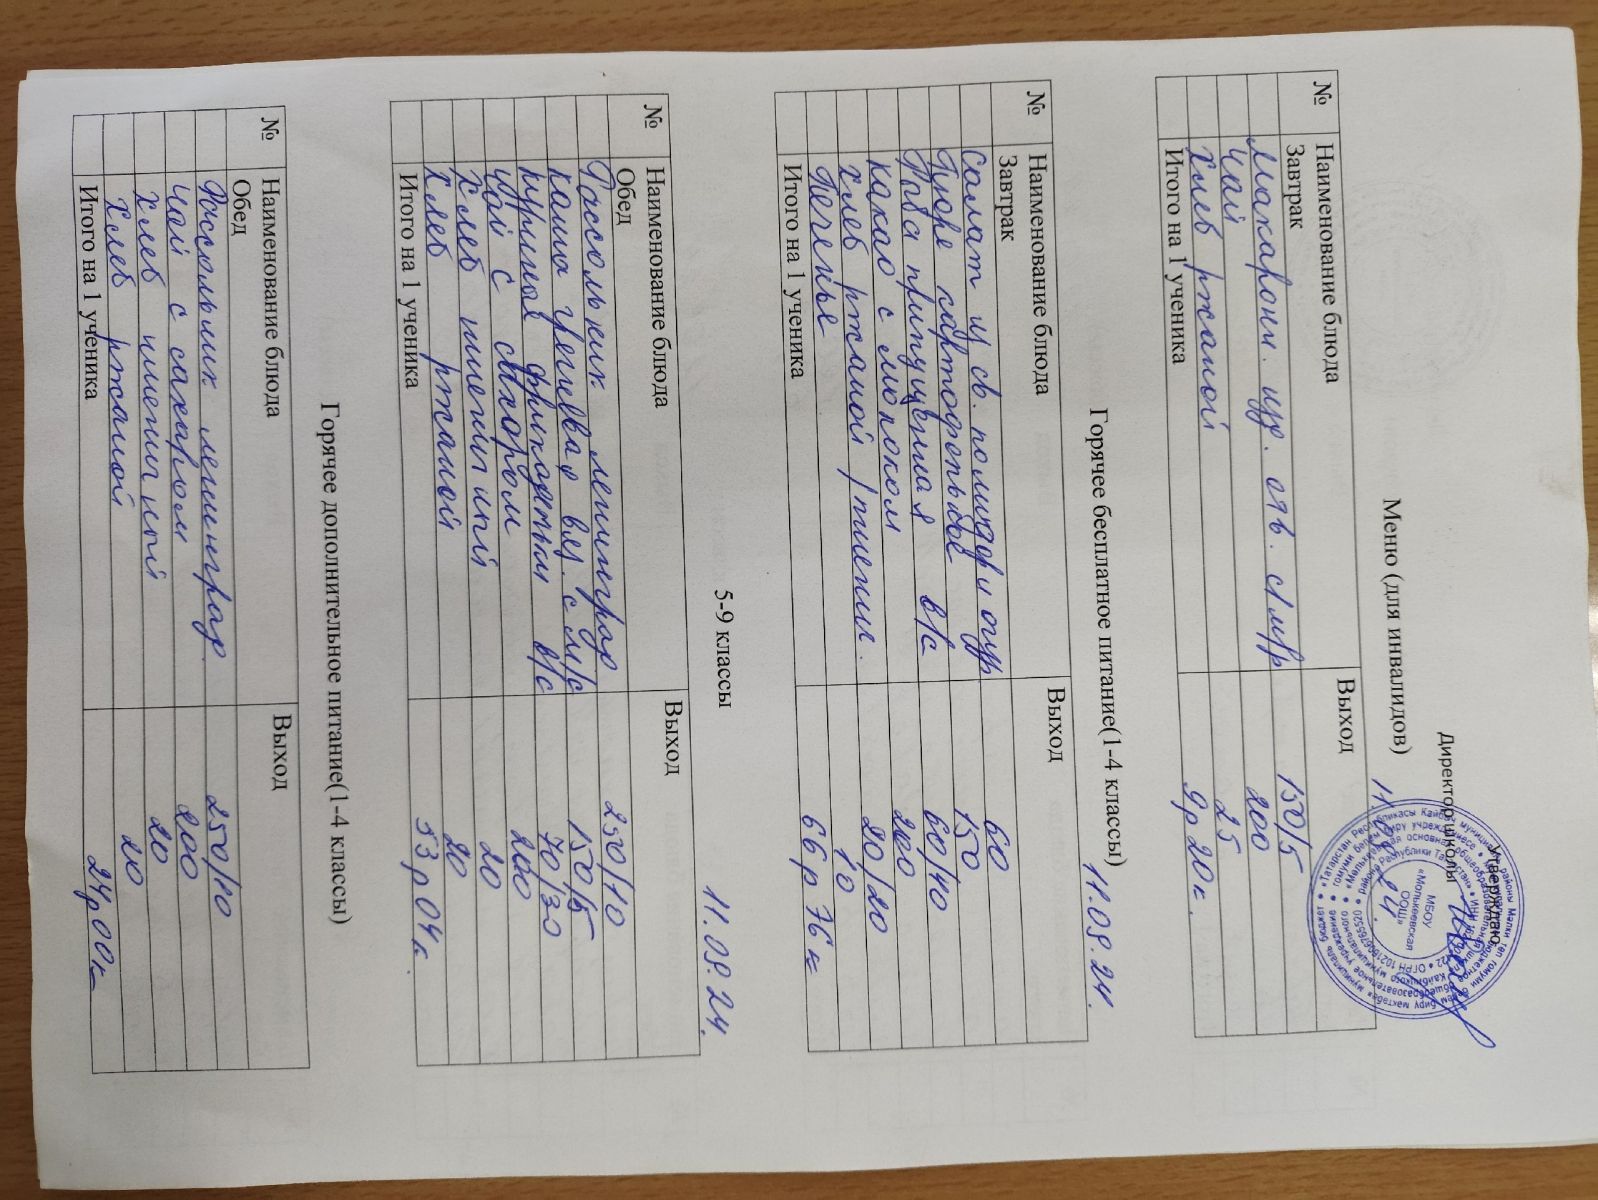 Утверждаю
Директор школы
Меню (для инвалидов)
№ Наименование блюда Выход
Завтрак
Макарон. изд. отв. с м/р 150/5
Чай 200
Хлеб ржаной 25
Итого на 1 ученика 9р 20к.
МБОУ
«Молькеевская
ООШ»
Горячее бесплатное питание(1-4 классы)
11.09.24.
№ Наименование блюда Выход
Завтрак
Салат из св. помидор и огур 60
Пюре картофельное 150
Рыба припущенная в/с 60/40
Какао с молоком 200
Хлеб ржаной/пшенич. 20/20
Печенье 10
Итого на 1 ученика 66р 76к
5-9 классы
11.09.24.
№ Наименование блюда Выход
Обед
Рассольник ленинград 250/10
Каша гречневая вяз. с м/с 150/5
куриные фрикадельки в/с 70/30
Чай с сахаром 200
Хлеб пшеничный 20
Хлеб ржаной 20
Итого на 1 ученика 53р 04к.
Горячее дополнительное питание(1-4 классы)
№ Наименование блюда Выход
Обед
Рассольник ленинград. 250/10
Чай с сахаром 200
Хлеб пшеничный 20
Хлеб ржаной 20
Итого на 1 ученика 24р00к